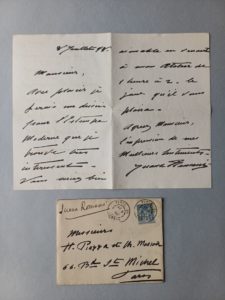 8 Juillet 98.
Monsieur,
Avec plaisir je
ferais un dessin
pour l'Estampe
Moderne que je
trouve très
intéressant.
Vous serez bien
aimable en venant
à mon Atelier de
1 heure à 2. le
jour qu'il vous
plaira.
Agréez Monsieur,
l'expression de mes
Meilleurs Sentiments
Juana Romani
(Juana Romani)
Messieurs
H. Piazza et Ch. Masson
66. Bd St Michel
Paris